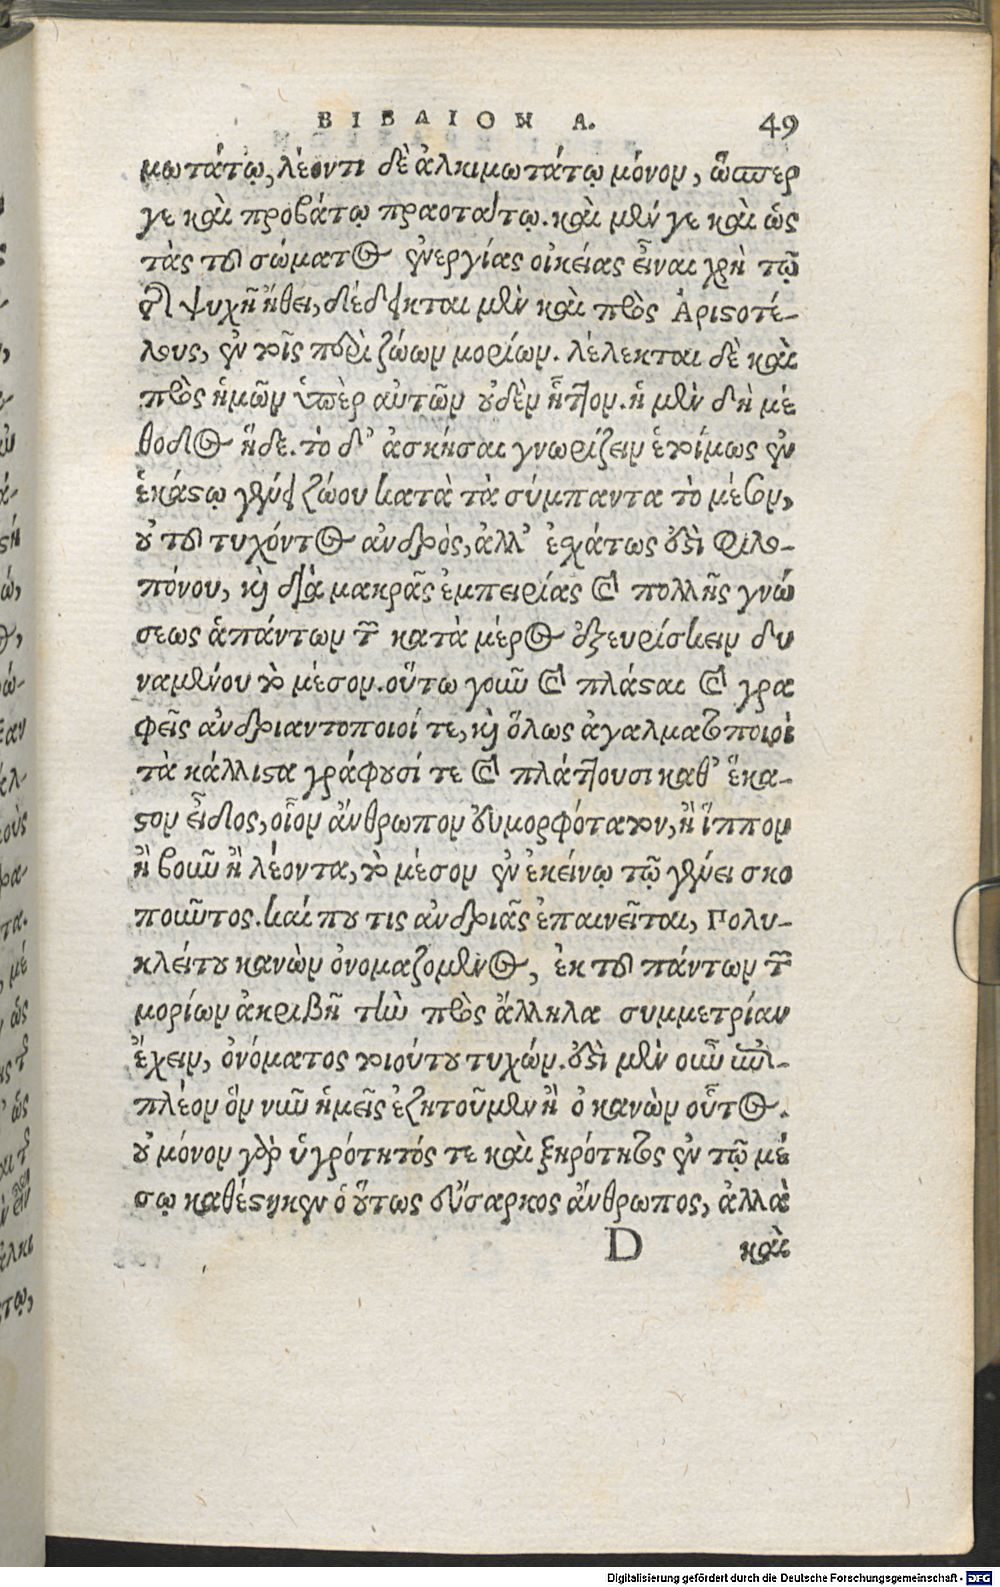 ΒΙΒΛΙΟΝ Α. 49
μωτάτῳ, λέοντι δὲ ἀλκιμωτάτῳ μόνον, ὥσπερ
γε καὶ προβάτῳ πραοτάτῳ. καὶ μέν γε καὶ ὡς
τὰς τοῦ σώματος ἐνεργίας οἰκείας εἶναι χρὴ τῷ
τῆς ψυχῆς ἤθει, δέδεικται μὲν καὶ πρὸς Ἀριστοτέ-
λους, ἐν τοῖς περὶ ζώων μορίων. λέλεκται δὲ καὶ
πρὸς ἡμῶν ὑπὲρ αὐτῶν οὐδὲν ἧττον. ἡ μὲν δὴ μέ
θοδος ἥδε. τὸ δ' ἀσκῆσαι γνωρίζειν ἑτοίμως ἐν
ἑκάστῳ γένει ζώου κατὰ τὰ σύμπαντα τὸ μέσον,
οὐ τοῦ τυχόντος ἀνδρὸς, ἀλλ' ἐσχάτως ἐστὶ φιλο-
πόνου, καὶ διὰ μακρᾶς ἐμπειρίας καὶ πολλῆς γνώ
σεως ἁπάντων τῶν κατὰ μέρος ἐξευρίσκειν δυ
ναμένου τὸ μέσον. οὕτω γοῦν καὶ πλάσται καὶ γρα
φεῖς ἀνδριαντοποιοί τε, καὶ ὅλως ἀγαλματοποιοὶ
τὰ κάλλιστα γράφουσί τε καὶ πλάττουσι καθ' ἕκα-
στον εἶδος, οἷον ἄνθρωπον εὐμορφότατον, ἢ ἵππον
ἢ βοῦν ἢ λέοντα, τὸ μέσον ἐν ἐκείνῳ τῷ γένει σκο
ποῦντος. καί που τις ἀνδριὰς ἐπαινεῖται, Πολυ-
κλείτου κανὼν ὀνομαζόμενος, ἐκ τοῦ πάντων τῶν
μορίων ἀκριβῆ τὴν πρὸς ἄλληλα συμμετρίαν
ἔχειν, ὀνόματος τοιούτου τυχών. ἐστὶ μὲν οὖν ἐπι-
πλέον ὃν νῦν ἡμεῖς ἐζητοῦμεν ἢ ὁ κανὼν οὗτος.
οὐ μόνον γὰρ ὑγρότητός τε καὶ ξηρότητος ἐν τῷ μέ
σῳ καθέστηκεν ὁ οὕτως εὔσαρκος ἄνθρωπος, ἀλλὰ
D καὶ
Digitalisierung gefördert durch die Deutsche Forschungsgemeinschaft - DFG